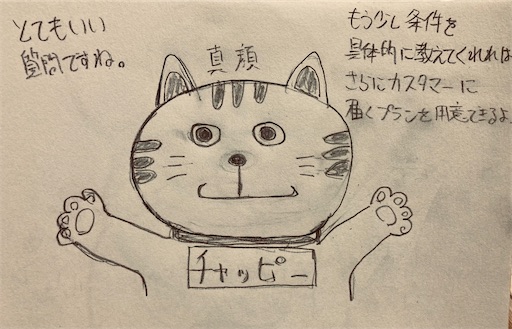 とてもいい
質問ですね。
真顔
もう少し条件を
具体的に教えてくれれば
さらにカスタマーに
届くプランを用意できるよ。
チャッピー